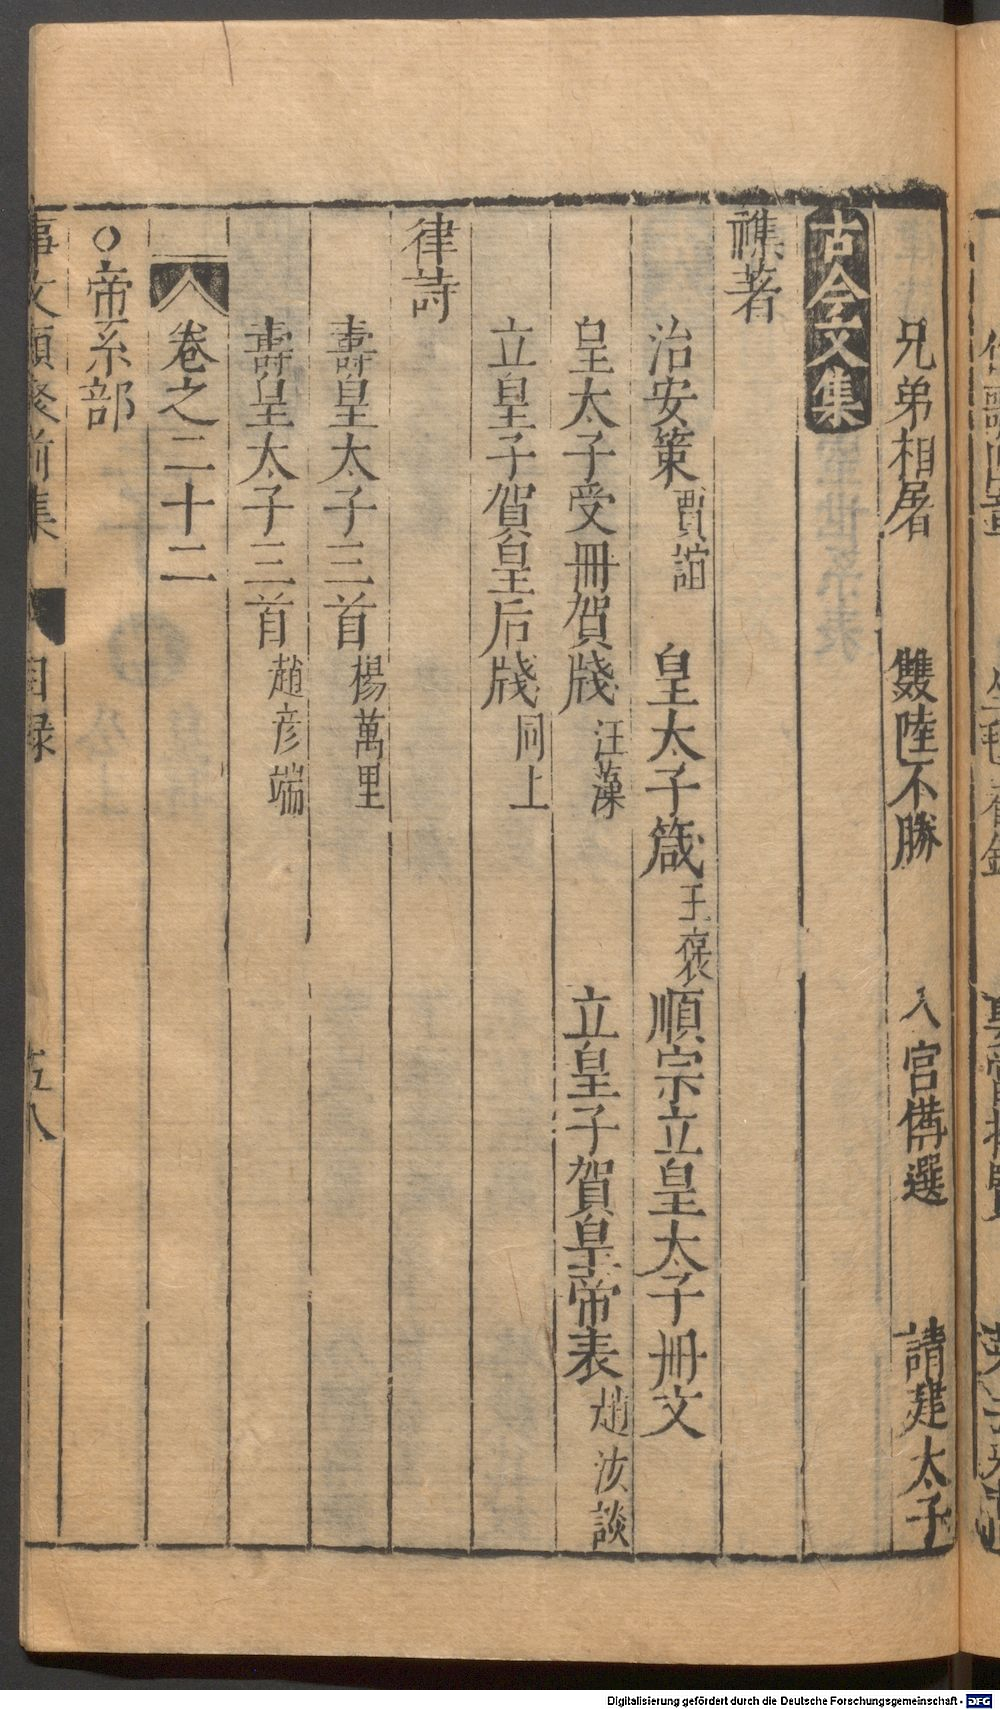 兄弟相屠　雙陸不勝　入宮備選　請建太子
古今文集
襍著
治安策 賈誼　皇太子箴 王褒　順宗立皇太子冊文
皇太子受冊賀牋 汪藻　立皇子賀皇帝表 趙汝談
立皇子賀皇后牋 同上
律詩
壽皇太子三首 楊萬里
壽皇太子三首 趙彥端
卷之二十二
○帝系部
事文類聚前集　目録　五八
Digitalisierung gefördert durch die Deutsche Forschungsgemeinschaft - DFG